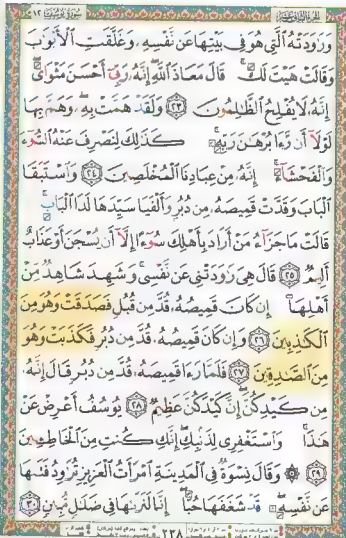 سورة يوسف ١٢
وَرَٰوَدَتْهُ ٱلَّتِى هُوَ فِى بَيْتِهَا عَن نَّفْسِهِۦ وَغَلَّقَتِ ٱلْأَبْوَٰبَ
وَقَالَتْ هَيْتَ لَكَ ۚ قَالَ مَعَاذَ ٱللَّهِ ۖ إِنَّهُۥ رَبِّىٓ أَحْسَنَ مَثْوَاىَ ۖ
إِنَّهُۥ لَا يُفْلِحُ ٱلظَّٰلِمُونَ ﴿٢٣﴾ وَلَقَدْ هَمَّتْ بِهِۦ ۖ وَهَمَّ بِهَا
لَوْلَآ أَن رَّءَا بُرْهَٰنَ رَبِّهِۦ ۚ كَذَٰلِكَ لِنَصْرِفَ عَنْهُ ٱلسُّوٓءَ
وَٱلْفَحْشَآءَ ۚ إِنَّهُۥ مِنْ عِبَادِنَا ٱلْمُخْلَصِينَ ﴿٢٤﴾ وَٱسْتَبَقَا
ٱلْبَابَ وَقَدَّتْ قَمِيصَهُۥ مِن دُبُرٍ وَأَلْفَيَا سَيِّدَهَا لَدَا ٱلْبَابِ ۚ
قَالَتْ مَا جَزَآءُ مَنْ أَرَادَ بِأَهْلِكَ سُوٓءًا إِلَّآ أَن يُسْجَنَ أَوْ عَذَابٌ
أَلِيمٌ ﴿٢٥﴾ قَالَ هِىَ رَٰوَدَتْنِى عَن نَّفْسِى ۚ وَشَهِدَ شَاهِدٌ مِّنْ
أَهْلِهَآ إِن كَانَ قَمِيصُهُۥ قُدَّ مِن قُبُلٍ فَصَدَقَتْ وَهُوَ مِنَ
ٱلْكَٰذِبِينَ ﴿٢٦﴾ وَإِن كَانَ قَمِيصُهُۥ قُدَّ مِن دُبُرٍ فَكَذَبَتْ وَهُوَ
مِنَ ٱلصَّٰدِقِينَ ﴿٢٧﴾ فَلَمَّا رَءَا قَمِيصَهُۥ قُدَّ مِن دُبُرٍ قَالَ إِنَّهُۥ
مِن كَيْدِكُنَّ ۖ إِنَّ كَيْدَكُنَّ عَظِيمٌ ﴿٢٨﴾ يُوسُفُ أَعْرِضْ عَنْ
هَٰذَا ۚ وَٱسْتَغْفِرِى لِذَنۢبِكِ ۖ إِنَّكِ كُنتِ مِنَ ٱلْخَاطِـِٔينَ
﴿٢٩﴾ ۞ وَقَالَ نِسْوَةٌ فِى ٱلْمَدِينَةِ ٱمْرَأَتُ ٱلْعَزِيزِ تُرَٰوِدُ فَتَىٰهَا
عَن نَّفْسِهِۦ ۖ قَدْ شَغَفَهَا حُبًّا ۖ إِنَّا لَنَرَىٰهَا فِى ضَلَٰلٍ مُّبِينٍ ﴿٣٠﴾
٢٣٨